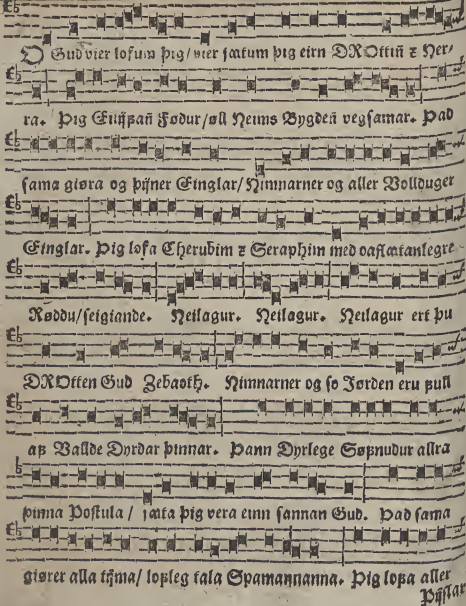 O Gud vier lofum þig/ vier jætum þig eirn DROttiñ ꝛ Her⸗
ra. Þig Eilijfañ Fødur/ øll Heims Bygdeñ vegsamar. Þad
sama giøra og þijner Einglar/ Himnarner og aller Vollduger
Einglar. Þig lofa Cherubim ꝛ Seraphim med oaflætanlegre
Røddu/ seigiande. Heilagur. Heilagur. Heilagur ert þu
DROtten Gud Zebaoth. Himnarner og so Jørden eru full
af Vallde Dyrdar þinnar. Þann Dyrlege Søfnudur allra
þinna Postula/ jæta þig vera einn sannan Gud. Þad sama
giører alla tijma/ lofleg tala Spamannanna. Þig lofa aller
Pijslar